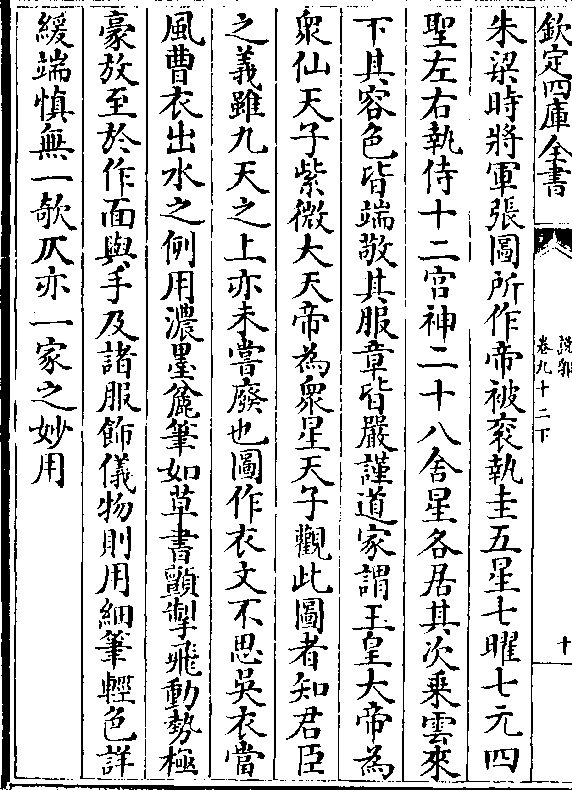 欽定四庫全書
說郛
卷九十二下
十
朱梁時將軍張圖所作帝被衮執圭五星七曜七元四
聖左右執侍十二宫神二十八舍星各居其次乗雲來
下其容色皆端敬其服章皆嚴謹道家謂玉皇大帝為
衆仙天子紫微大天帝為衆星天子觀此圖者知君臣
之義雖九天之上亦未嘗廢也圖作衣文不思吳衣當
風曹衣出水之例用濃墨麄筆如草書顫掣飛動勢極
豪放至於作面與手及諸服飾儀物則用細筆輕色詳
緩端慎無一欹仄亦一家之妙用